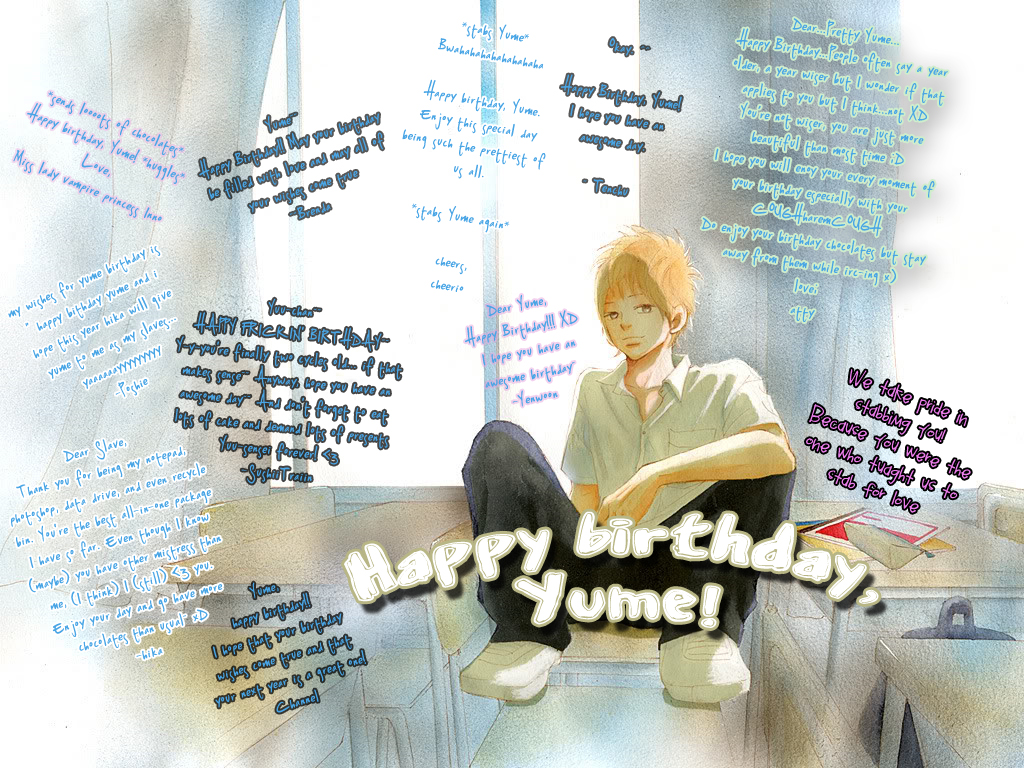 *sends looots of chocolates*
Happy birthday, Yume! *huggles*
Love,
Miss lady vampire princess Inno
Yume~
Happy Birthday!! May your birthday
be filled with love and may all of
your wishes come true
~Brenda
*stabs Yume*
Bwahahahahahahahaha
Happy birthday, Yume.
Enjoy this special day
being such the prettiest of
us all.
*stabs Yume again*
cheers,
cheerio
Okay. ~
Happy Birthday, Yume!
I hope you have an
awesome day.
- Tenchu
Dear...Pretty Yume...
Happy Birthday...People often say a year
older, a year wiser but I wonder if that
applies to you but I think...not XD
You're not wiser, you are just more
beautiful than most time :D
I hope you will enoy your every moment of
your birthday especially with your
COUGHharemCOUGH
Do enjoy your birthday chocolates but stay
away from them while irc-ing x)
love;
-tty
my wishes for yume birthday is
" happy bithday yume and i
hope this year hika will give
yume to me as my slaves...
yaaaaayyyyyyyy
-Poshie
You-chan~
HAPPY FRICKIN' BIRTHDAY~
Y-y-you're finally two cycles old... if that
makes sense~ Anyway, hope you have an
awesome day~ And don't forget to eat
lots of cake and demand lots of presents
You-sensei forever! <3
~SushiiTraiin
Dear Yume,
Happy Birthday!!! XD
I hope you have an
awesome birthday~
~Yenwoon
We take pride in
stabbing you!
Because you were the
one who tught us to
stab for love
Dear Slave,
Thank you for being my notepad,
photoshop, data drive, and even recycle
bin. You're the best all-in-one package
I have so far. Even though I know
(maybe) you have other mistress than
me, (I think) I (still) <3 you.
Enjoy your day and go have more
chocolates than usual~ xD
-hika
Yume,
happy birthday!!
I hope that your birthday
wishes come true and that
your next year is a great one!
Channel
Happy birthday,
Yume!